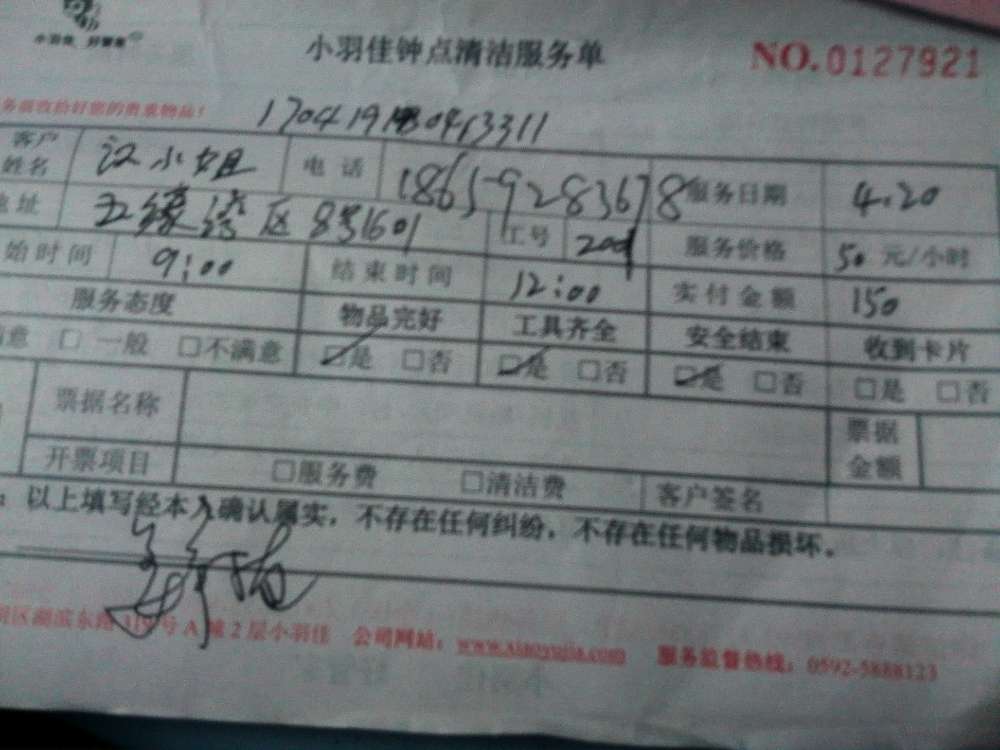 小羽佳 好管家
小羽佳钟点清洁服务单
NO.0127921
务前收拾好您的贵重物品!
客户姓名 江小姐 电话 18659283678 服务日期 4.20
地址 五缘 区 工号 服务价格 50 元/小时
始时间 9:00 结束时间 12:00 实付金额 150
服务态度 物品完好 工具齐全 安全结束 收到卡片
意 □ 一般 □不满意 ☑是 □否 ☑是 □否 ☑是 □否 □是 □否
票据名称 票据金额
开票项目 □服务费 □清洁费 客户签名
: 以上填写经本人确认属实，不存在任何纠纷，不存在任何物品损坏。
区湖滨东路 号A 2层小羽佳 公司网站：www.xiaoyujia.com 服务监督热线：0592-5888123